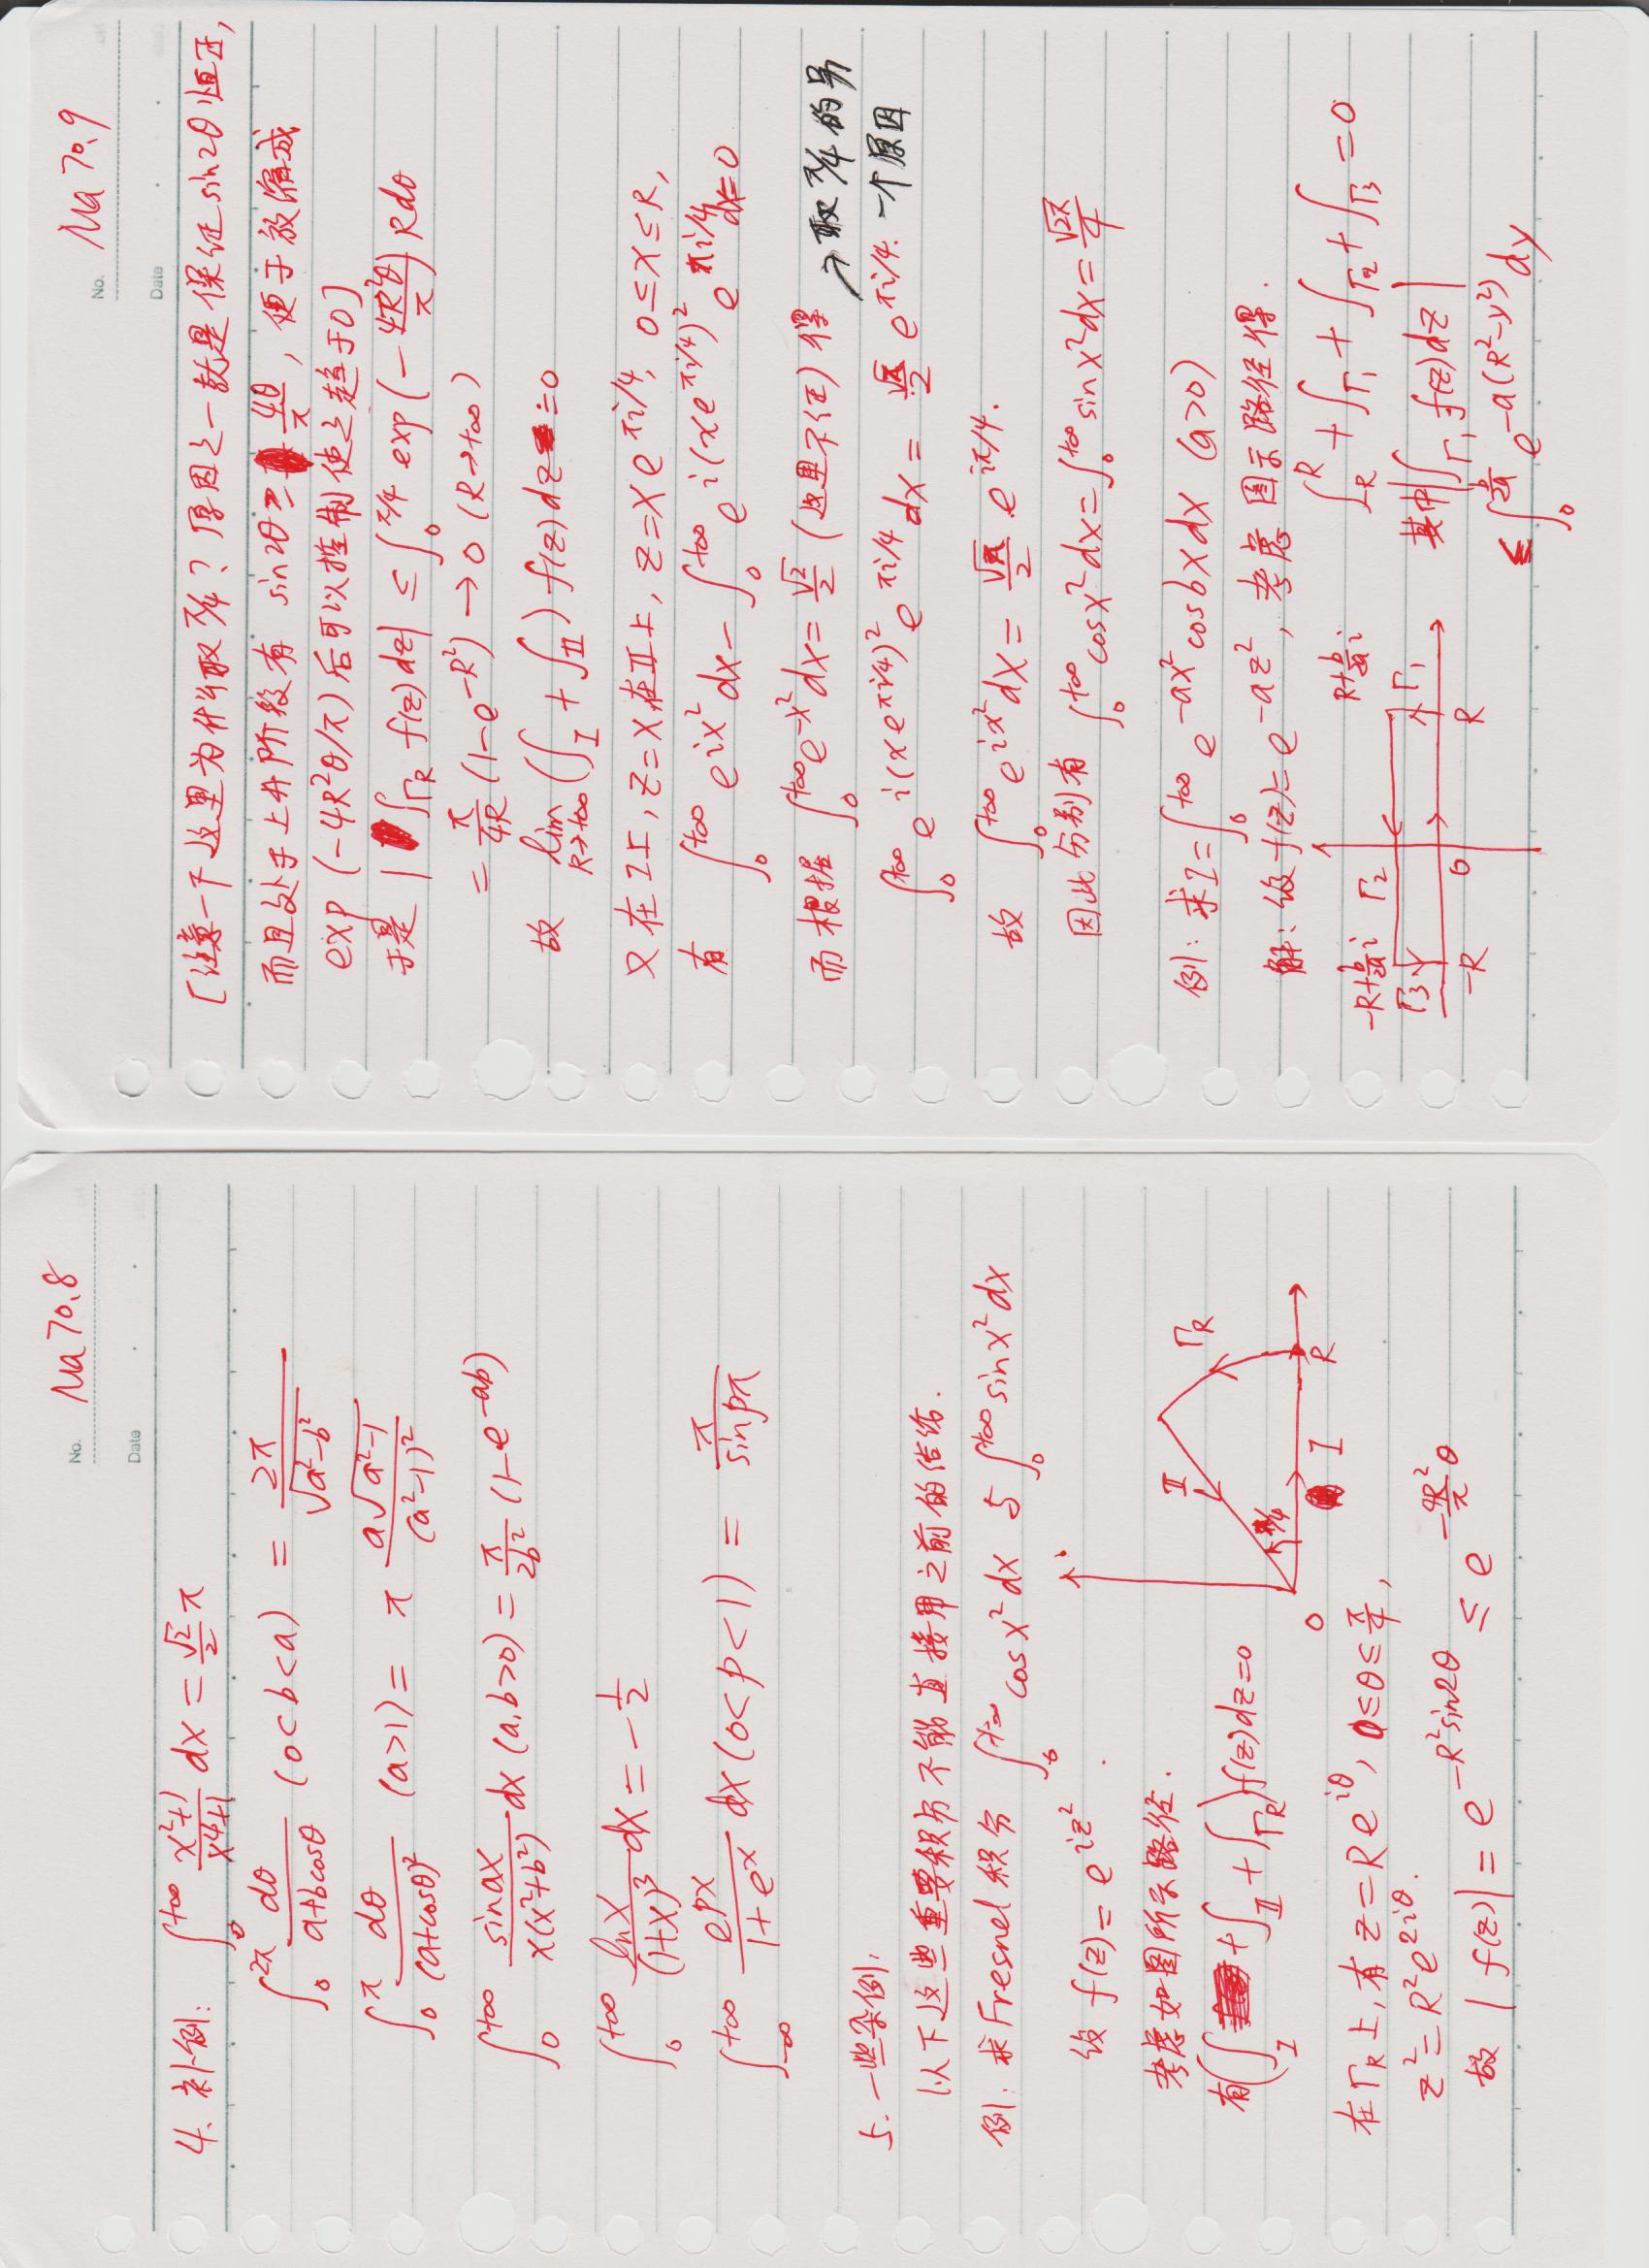 No. Ma 70.8
Date
4. 补例: ∫₀^{+∞} (x²+1)/(x⁴+1) dx = (√2/2)π
∫₀^{2π} dθ/(a+bcosθ) (0<b<a) = 2π/√(a²-b²)
∫₀^{π} dθ/(a+cosθ)² (a>1) = π a√(a²-1)/(a²-1)²
∫₀^{+∞} sinax/(x(x²+b²)) dx (a,b>0) = π/(2b²) (1-e^{-ab})
∫₀^{+∞} lnx/(1+x)³ dx = -1/2
∫_{-∞}^{+∞} e^{px}/(1+e^x) dx (0<p<1) = π/sinpπ
5. 一些杂例.
以下这些重要积分不能直接用之前的结论.
例: 求Fresnel积分 ∫₀^{+∞} cosx²dx 与 ∫₀^{+∞} sinx²dx
设 f(z)=e^{iz²}.
考虑如图所示路径.
有(∫_I + ∫_II + ∫_{Γ_R}) f(z)dz=0
II Γ_R
π/4
O I R
在Γ_R上, 有 z=Re^{iθ}, 0≤θ≤π/4,
z²=R²e^{2iθ}.
故 |f(z)| = e^{-R²sin2θ} ≤ e^{-(4R²/π)θ}
No. Ma 70.9
Date
[注意一下这里为什么取π/4? 原因之一就是保证sin2θ恒正,
而且处于上升阶段有 sin2θ≥4θ/π, 便于放缩成
exp(-4R²θ/π)后可以控制使之趋于0]
于是 |∫_{Γ_R} f(z)dz| ≤ ∫₀^{π/4} exp(-4R²θ/π) Rdθ
= π/(4R) (1-e^{-R²}) → 0 (R→+∞)
故 lim_{R→+∞} (∫_I + ∫_II) f(z)dz=0
又在I上, z=x, 在II上, z=xe^{πi/4}, 0≤x≤R,
有 ∫₀^{+∞} e^{ix²}dx - ∫₀^{+∞} e^{i(xe^{πi/4})²} e^{πi/4}dx=0
而根据 ∫₀^{+∞} e^{-x²}dx = √2/2 (这里不证) 得 → 取π/4的另
∫₀^{+∞} e^{i(xe^{πi/4})²} e^{πi/4}dx = (√π/2) e^{πi/4}. 一个原因
故 ∫₀^{+∞} e^{ix²}dx = (√π/2) e^{iπ/4}.
因此分别有 ∫₀^{+∞} cosx²dx = ∫₀^{+∞} sinx²dx = √2π/4
例: 求I=∫₀^{+∞} e^{-ax²}cosbxdx (a>0)
解: 设f(z)=e^{-az²}, 考虑图示路径得.
∫_{-R}^{R} + ∫_{Γ₁} + ∫_{Γ₂} + ∫_{Γ₃} = 0
-R+(b/2a)i Γ₂ R+(b/2a)i
Γ₃ Γ₁
-R 0 R
其中|∫_{Γ₁} f(z)dz|
≤ ∫₀^{b/2a} e^{-a(R²-y²)}dy